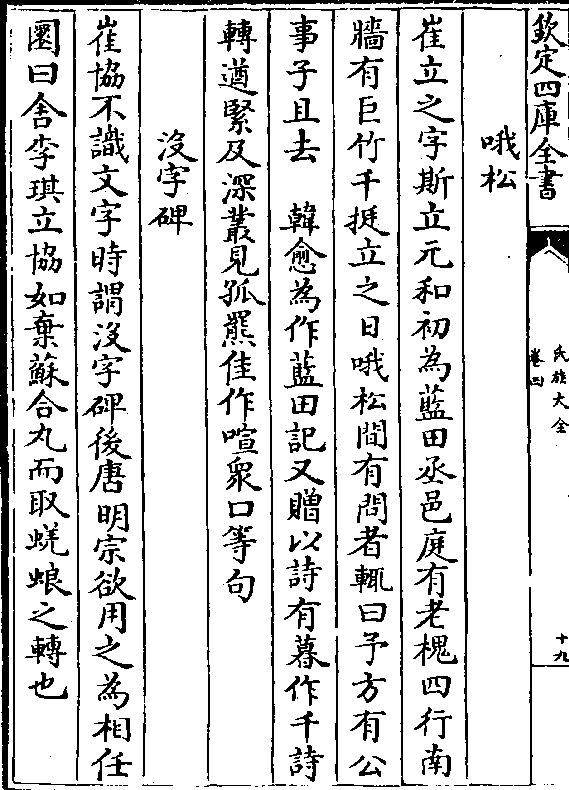 欽定四庫全書
氏族大全
卷四
十九
哦松
崔立之字斯立元和初為藍田丞邑庭有老槐四行南
牆有巨竹千挺立之日哦松間有問者輒曰予方有公
事子且去　韓愈為作藍田記又贈以詩有暮作千詩
轉遒緊及深叢見孤羆佳作喧衆口等句
沒字碑
崔協不識文字時謂沒字碑後唐明宗欲用之為相任
圜曰舍李琪立協如棄蘇合丸而取蜣蜋之轉也